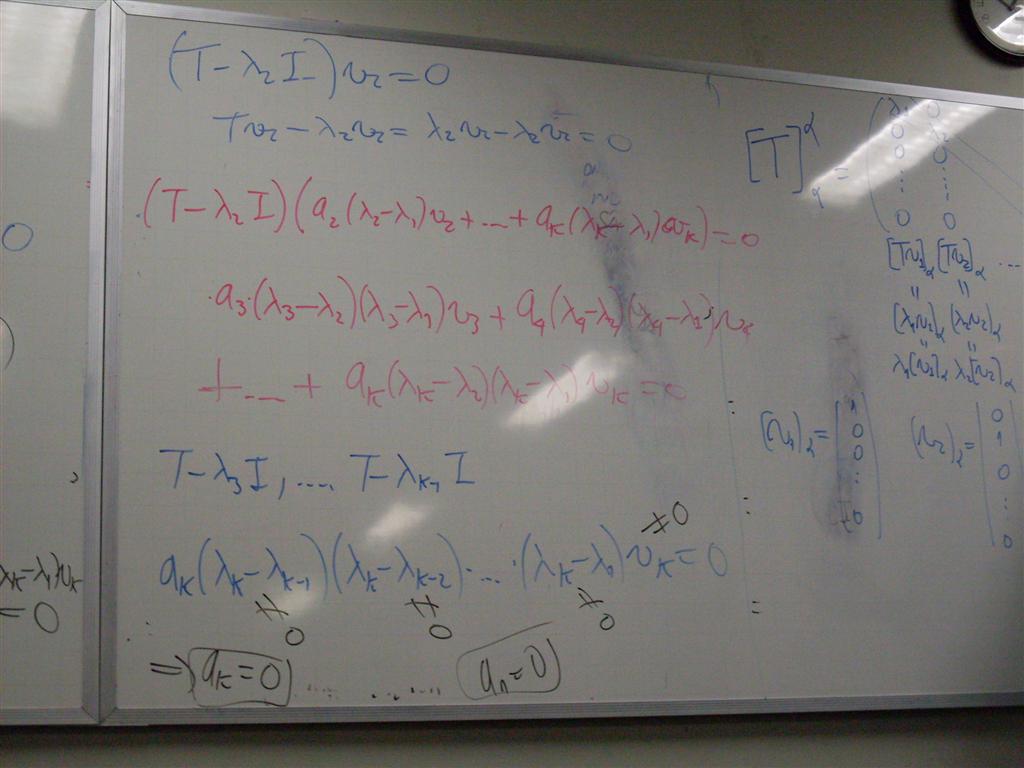 0
λk-λ1)vk
=0
(T-λ2I)v2=0
Tv2-λ2v2=λ2v2-λ2v2=0
(T-λ2I)(a2(λ2-λ1)v2+...+ak(λk-λ1)vk)=0
a3(λ3-λ2)(λ3-λ1)v3+a4(λ4-λ2)(λ4-λ1)v4
+...+ak(λk-λ2)(λk-λ1)vk=0
T-λ3I,.... T-λk-1I
≠0
ak(λk-λk-1)(λk-λk-2)....(λk-λ1)vk=0
≠0 ≠0 ≠0
⇒ ak=0 ..... ....... a1=0
[T]αα =
λ1 0
0 λ2
0 0
⋮ ⋮
0 0
[Tv1]α [Tv2]α ...
= =
[λ1v1]α [λ2v2]α
= =
λ1[v1]α λ2[v2]α
[v1]α= 1 0 0 ⋮ 0
[v2]α= 0 1 0 ⋮ 0